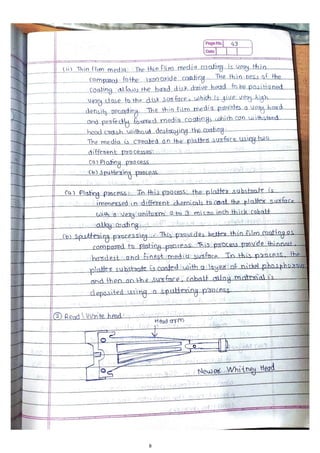 Page No. 43
Date
(ii) Thin film media: The thin film media coating is very thin
compared to the iron oxide coating. The thin ness of the
coating allows the hard disk drive head to be positioned
very close to the disk surface, which is give very high
density recording. The thin film media provides a very hard
and perfectly formed media coatings which can withstand
head crash without destroying the coating.
The media is created on the platter surface using two
different processes:
(a) Plating process
(b) sputtering process
(a) Plating process: In this process the platter substrate is
immersed in different chemicals to coat the platter surface
with a very uniform 2 to 3 micro inch thick cobalt
alloy coating.
(b) sputtering processing: This provides better thin film coating as
compared to plating process. This process provide thinnest,
hardest and finest media surface. In this process, the
platter substrate is coated with a layer of nickel phosphorus
and then on the surface, cobalt alloy material is
deposited using a sputtering process.
② Read / Write head:
Head arm
Newer Whitney Head
8